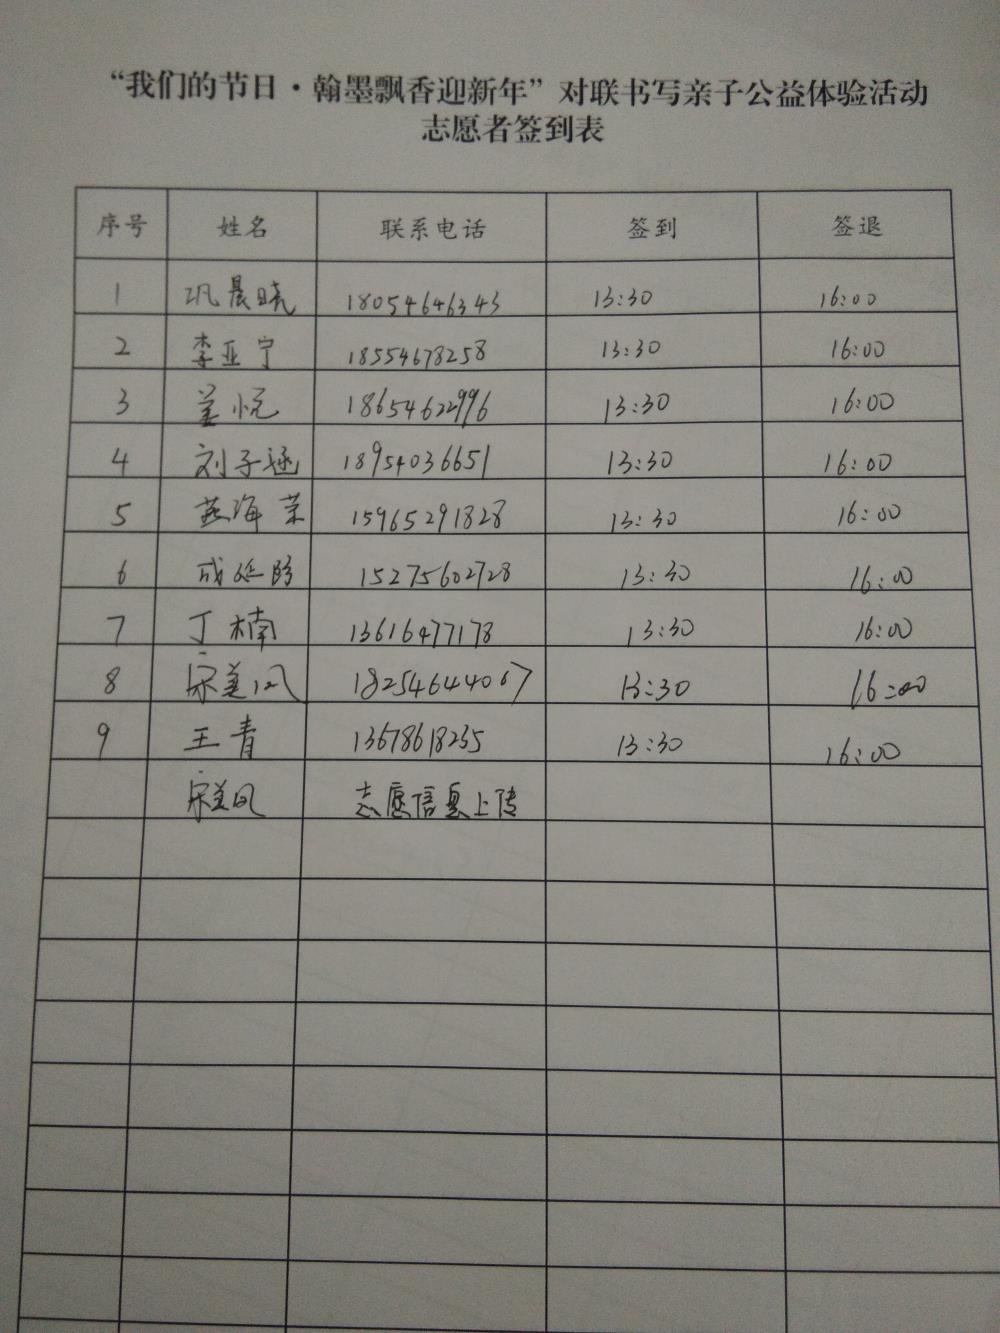 “我们的节日·翰墨飘香迎新年”对联书写亲子公益体验活动
志愿者签到表
序号 姓名 联系电话 签到 签退
1 巩晨晓 18054646343 13:30 16:00
2 李亚宁 18554678258 13:30 16:00
3 姜悦 18654622996 13:30 16:00
4 刘子涵 18954036651 13:30 16:00
5 燕海荣 15965291828 13:30 16:00
6 成延 15275602728 13:30 16:00
7 丁楠 13616477178 13:30 16:00
8 宋美凤 18254644067 13:30 16:00
9 王青 13678618235 13:30 16:00
宋美凤 志愿信息上传